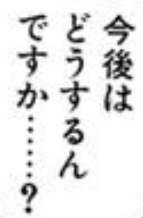 今後は
どうするん
ですか……？